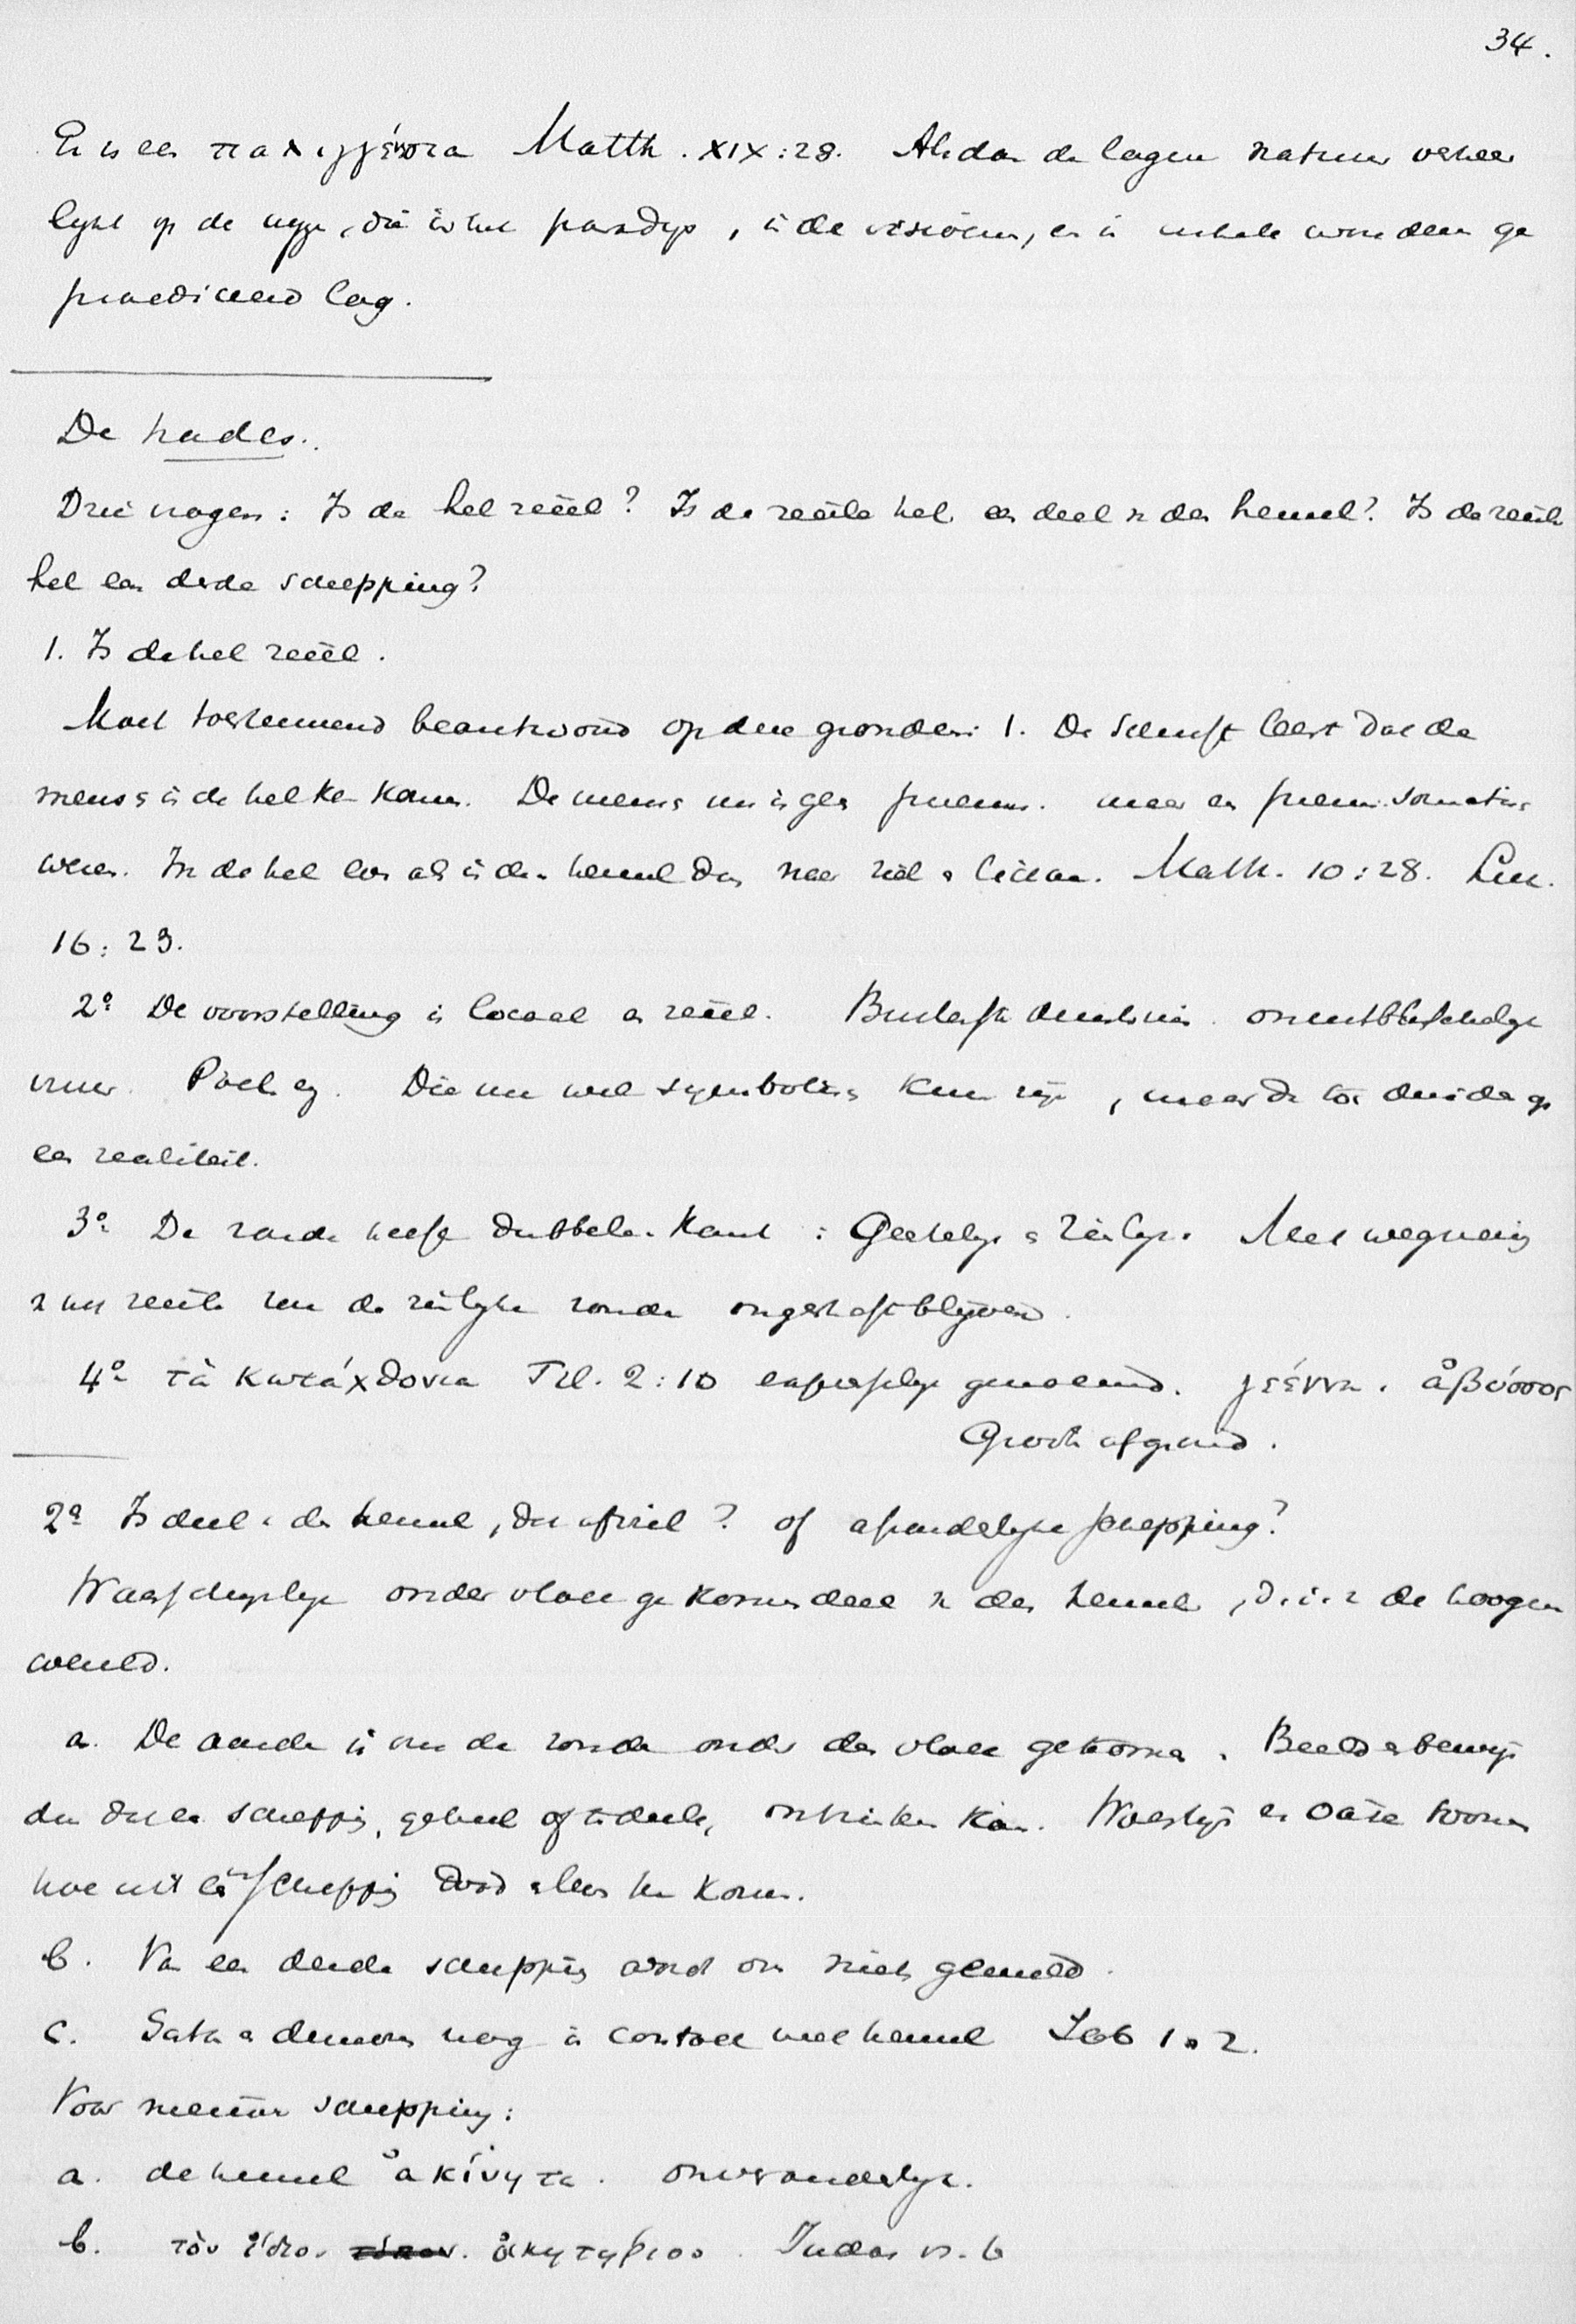 34.
Er is een παλιγγένεσια Matth. XIX:28. Alsdan de lagere natuur verheer
lykt op de wyze, die in het paradys, in de visioenen, en in enkele wonderen ge
praediceerd lag.
De hades.
Drie vragen: Is de hel reëel? Is de reëele hel een deel v den hemel? Is de reëele
hel een derde schepping?
1. Is de hel reëel.
Moet toestemmend beantwoord op deze gronden: 1. De Schrift leert dat de
mensch in de hel kan komen. De mensch nu is geen pneum. maar een pneum. somatisch
wezen. In de hel even als in den hemel dus naar ziel en lichaam. Matth. 10:28. Luc.
16:23.
2º De voorstelling is locaal en reëel. Buitenste duisternis. onuitblusschelyk
vuur. Poel Die nu wel symbolisch kunnen zyn, maar dan toch duiden op
een realiteit.
3º De zonde heeft dubbelen kant: Geestelyk en Zinlyk. Met wegneming
v het reëele zou de zinlyke zonde ongestraft blyven.
4º τὰ καταχθονια Fil. 2:10 genoemd. γέεννα. ἀβύσσος
Groote afgrond.
2º Is deel v den hemel, dat afviel? of afzonderlyke schepping?
Waarschynlyk onder vloek gekomen deel v den hemel, d.i. v de hoogere
wereld.
a. De aarde is om de zonde onder den vloek gekomen. Beeld en bewys
dus dat een schepping, geheel of ten deele, ontzinken kan. Woestyn en Oase toonen
hoe uit één schepping dood en leven kan komen.
b. Van een derde schepping wordt ons niets gemeld.
c. Satan en demonen nog in contact met hemel Job 1 en 2.
Voor nieuwe schepping:
a. de hemel ἀκίνητα. onveranderlyk.
b. τὸν ἴδιον οἰκητήριον. Judas vs. 6